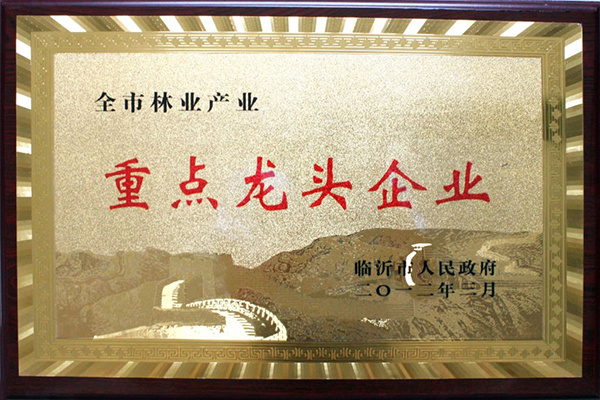 全市林业产业
重点龙头企业
临沂市人民政府
二〇一二年二月